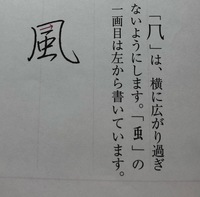 「⺇」は、横に広がり過ぎ
ないようにします。「䖝」の
一画目は左から書いています。
風